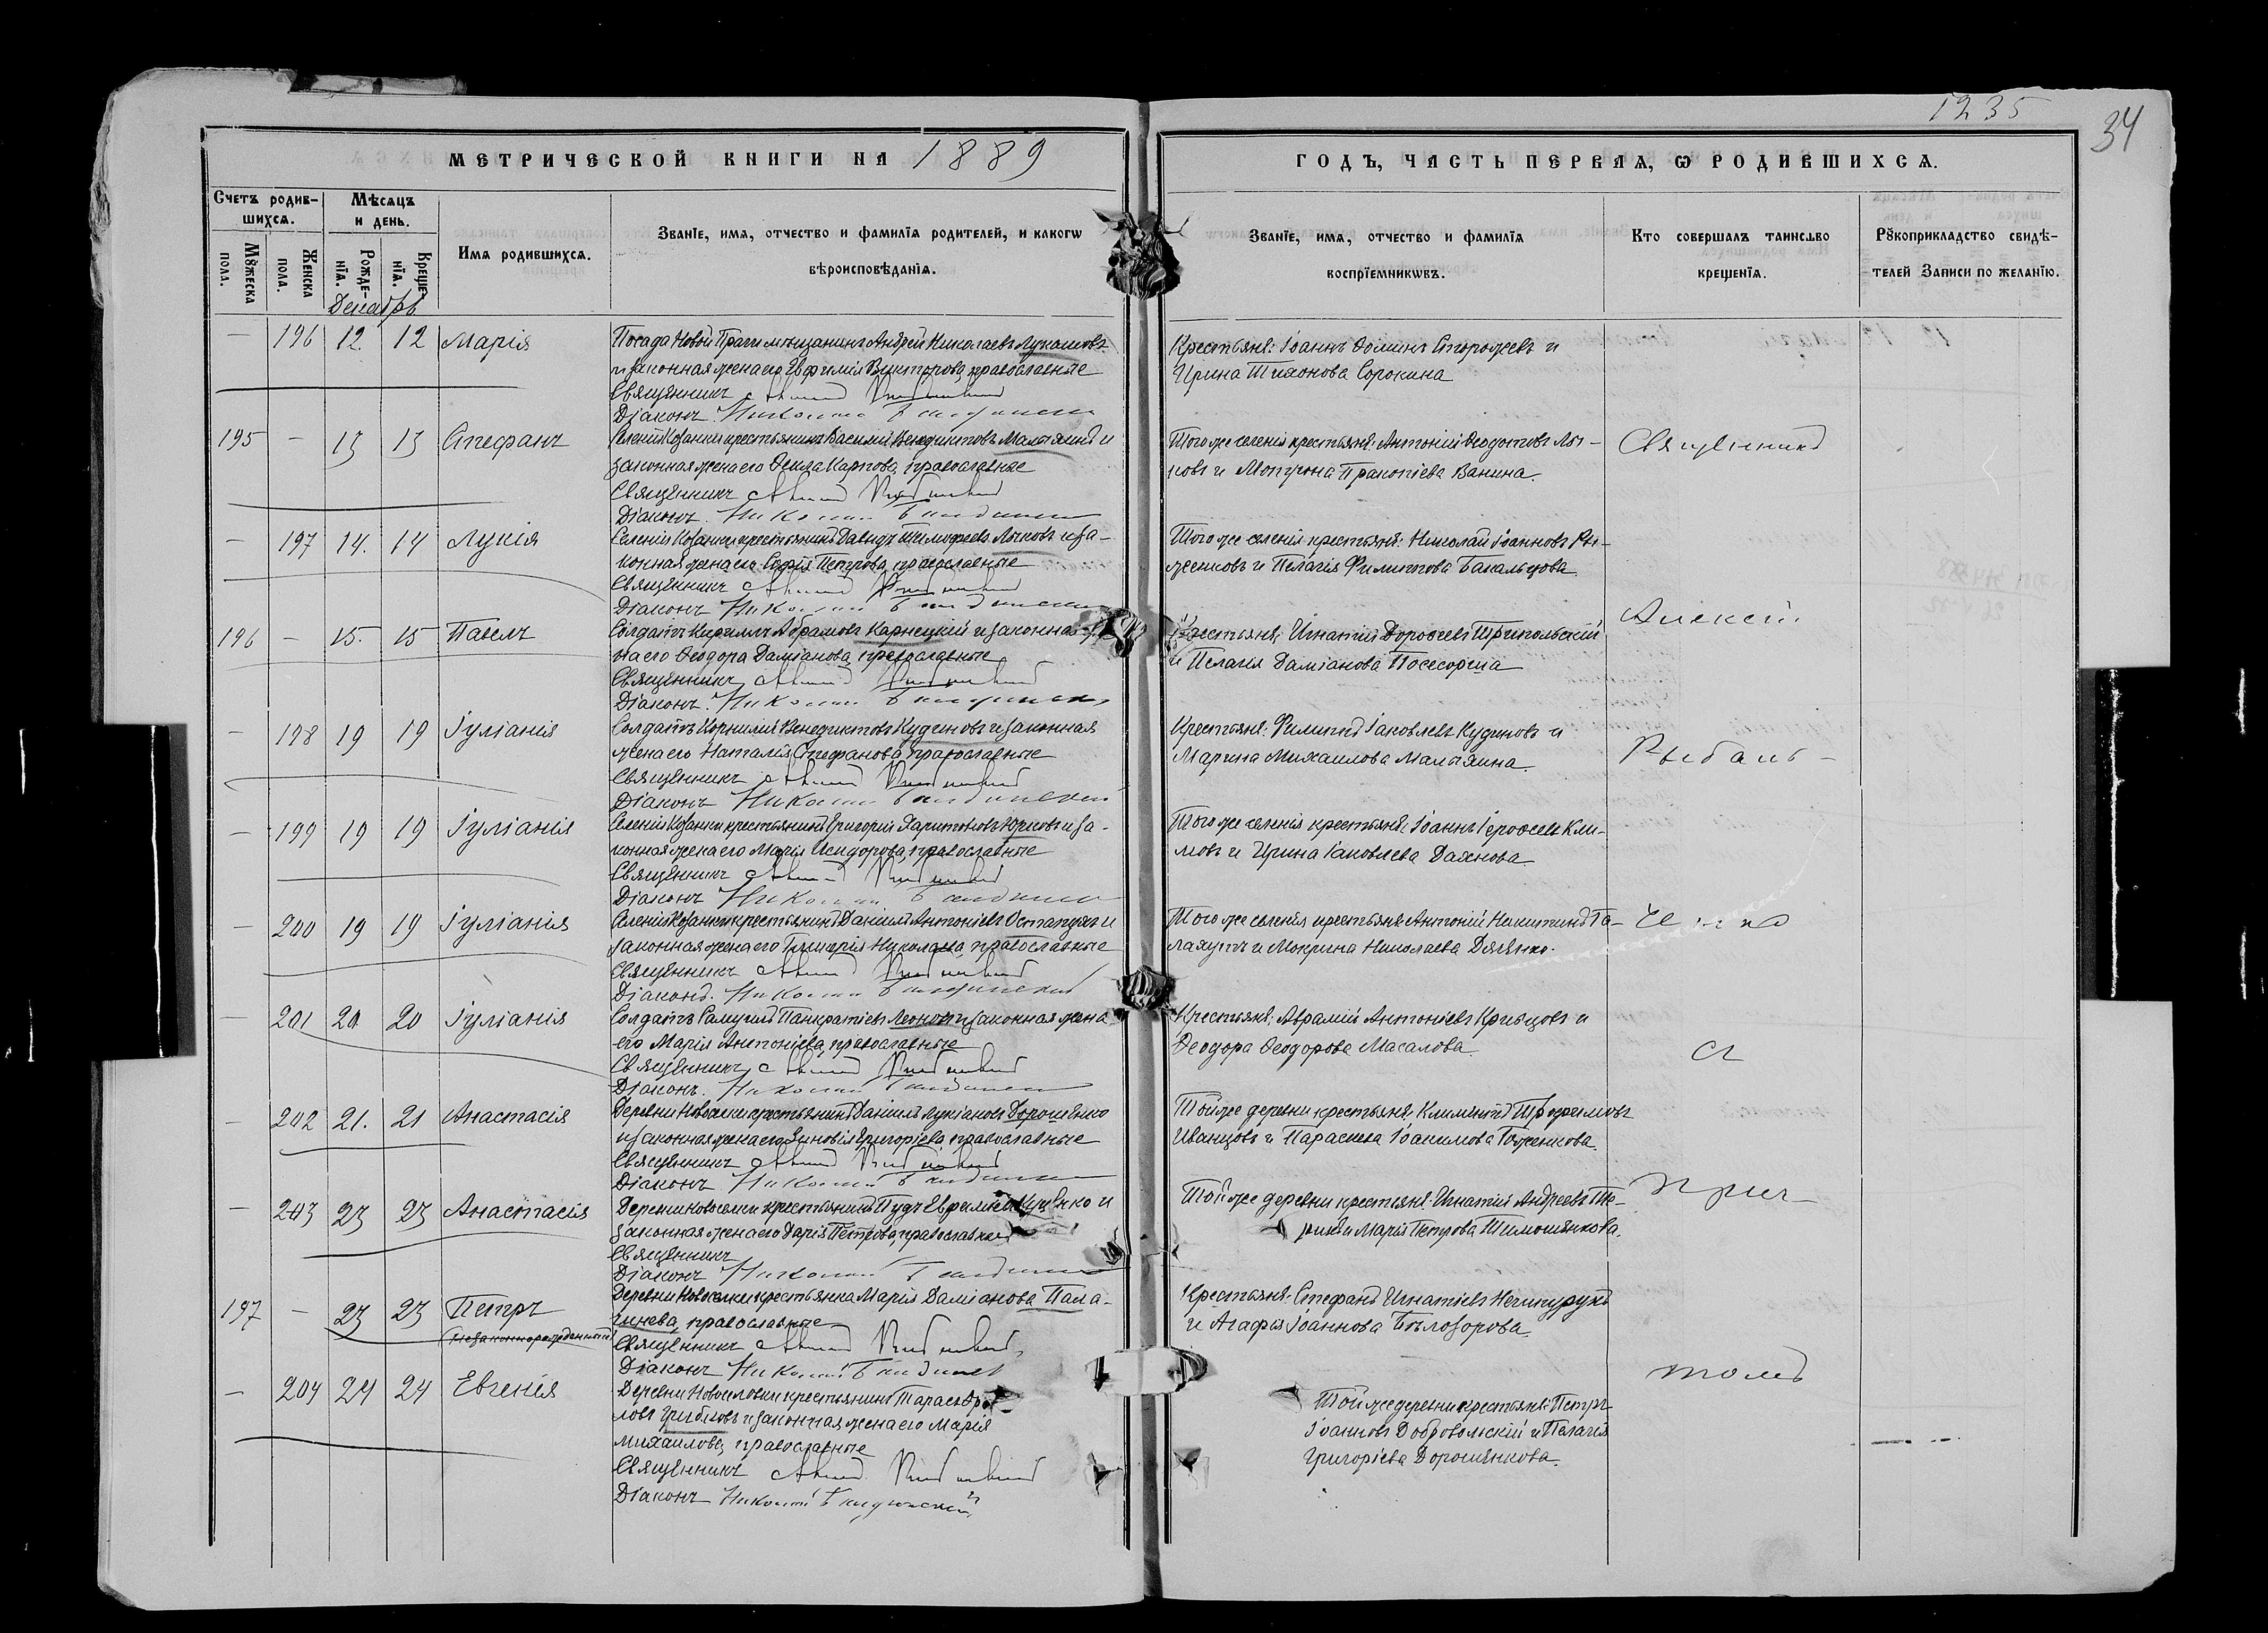 1235
34
МЕТРИЧЕСКОЙ КНИГИ НА 1889
ГОДЪ, ЧАСТЬ ПЕРВАЯ, Ѡ РОДИВШИХСѦ.
Счетъ родив-
шихсѧ.
Мѣсѧцъ
и день.
Мꙋжеска
пола.
Женска
пола.
Рожде-
нїѧ.
Креще-
нїѧ.
Имѧ родившихсѧ.
Званїе, имѧ, отчество и фамилїѧ родителей, и какогѡ
вѣроисповѣданїѧ.
Званїе, имѧ, отчество и фамилїѧ
воспрїемникѡвъ.
Кто совершалъ таинство
крещенїѧ.
Рꙋкоприкладство свидѣ-
телей Записи по желанїю.
Декабрь
— 196 12. 12 Марія
Посада Новой Праги мѣщанинъ Андрей Николаевъ Лукашовъ
и законная жена его Евфимія Викторова, православные
Священникъ
Діаконъ Николай
Крестьяне: Іоаннъ Ѳоминъ Сторожевъ и
Ирина Тихонова Сорокина
195 — 13 13 Стефанъ
Селенія Козанки крестьянинъ Василій Венедиктовъ Малыхинъ и
законная жена его Ѳекла Карпова, православные
Священникъ
Діаконъ. Николай
Того же селенія крестьяне: Антоній Ѳеодотовъ Лы-
ковъ и Матрона Пракопіева Ванина.
Священникъ
— 197 14. 14 Лукія
Селенія Козанки крестьянинъ Давидъ Тимофеевъ Лыковъ и за-
конная жена его Софія Петрова, православные
Священникъ
Діаконъ Николай
Того же селенія крестьяне: Николай Іоанновъ Ры-
жениковъ и Пелагія Филиппова Бакальцова
Алексій
196 — 15. 15 Павелъ
Солдатъ Кириллъ Абрамовъ Карнецкій и законная же-
на его Ѳеодора Даміанова, православные
Священникъ
Діаконъ. Николай
Крестьяне: Игнатій Дороѳеевъ Трипольскій
и Пелагія Даміанова Посесорша
— 198 19 19 Іуліанія
Солдатъ Корнилій Венедиктовъ Кудиновъ и законная
жена его Наталія Стефанова, православные
Священникъ
Діаконъ Николай
Крестьяне: Филиппъ Іаковлевъ Кудиновъ и
Марина Михаилова Малыхина.
Рыбаль-
— 199 19 19 Іуліанія
Селенія Козанки крестьянинъ Григорій Харитоновъ Юрковъ и за-
конная жена его Марія Исидорова, православные
Священникъ
Діаконъ Николай
Того же селенія крестьяне: Іоаннъ Іероѳеевъ Кли-
мовъ и Ирина Іаковлева Даянова.
— 200 19 19 Іуліанія
Селенія Козанки крестьянинъ Даніилъ Антоніевъ Остапуха и
законная жена его Гликерія Николаева, православные
Священникъ
Діаконъ. Николай
Того же селенія крестьяне: Антоній Никитинъ Га-
лахутъ и Мокрина Николаева Дяченко.
ченко
— 201 20 20 Іуліанія
Солдатъ Самуилъ Панкратіевъ Леоновъ и законная жена
его Марія Антоніева, православные
Священникъ
Діаконъ. Николай
Крестьяне: Аврамій Антоніевъ Кривцовъ и
Ѳеодора Ѳеодорова Масалова.
съ
— 202 21. 21 Анастасія
Деревни Новоселки крестьянинъ Даніилъ Лукіановъ Дорошенко
и законная жена его Зиновія Григоріева, православные
Священникъ
Діаконъ Николай
Той же деревни крестьяне: Климентъ Трофимовъ
Иванцовъ и Параскева Іоакимова Гоженкова.
— 203 23 23 Анастасія
Деревни Новоселки крестьянинъ Пудъ Ефимовъ Куценко и
законная жена его Дарія Петрова, православные
Священникъ
Діаконъ Николай
Той же деревни крестьяне: Игнатій Андреевъ
и Марія Петрова Тимошенкова.
прич-
197 — 23 23 Петръ
Незаконнорожденный
Деревни Новоселки крестьянка Марія Даміанова Пала-
гичева, православные
Священникъ
Діаконъ Николай
Крестьяне: Стефанъ Игнатіевъ Нечипурукъ
и Агафія Іоаннова Бѣлозорова.
томъ
— 204 24 24 Евгенія
Деревни Новоселовки крестьянинъ Тарасъ
Грибковъ и законная жена его Марія
Михаилова, православные
Священникъ
Діаконъ Николай
Той же деревни крестьяне: Петръ
Іоанновъ Добровольскій и Пелагія
Григоріева Дорошенкова.